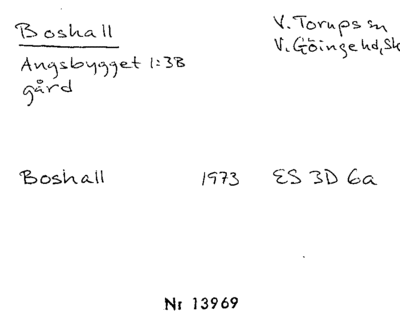 Boshall
V. Torups sn
V. Göinge hd, Sk
Angsbygget 1:3B
gård
Boshall 1973 ES 3D 6a
Nr 13969